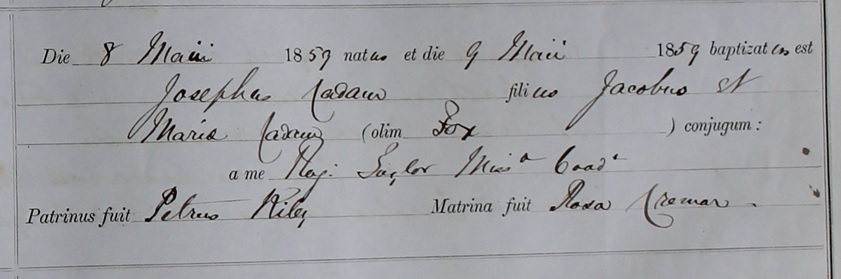 Die 8 Maii 1859 natus et die 9 Maii 1859 baptizatus est
Josephus Cadam filius Jacobus et
Maria Cadam (olim Fox ) conjugum :
a me Rog. Taylor Miss.
Patrinus fuit Petrus Riley Matrina fuit Rosa